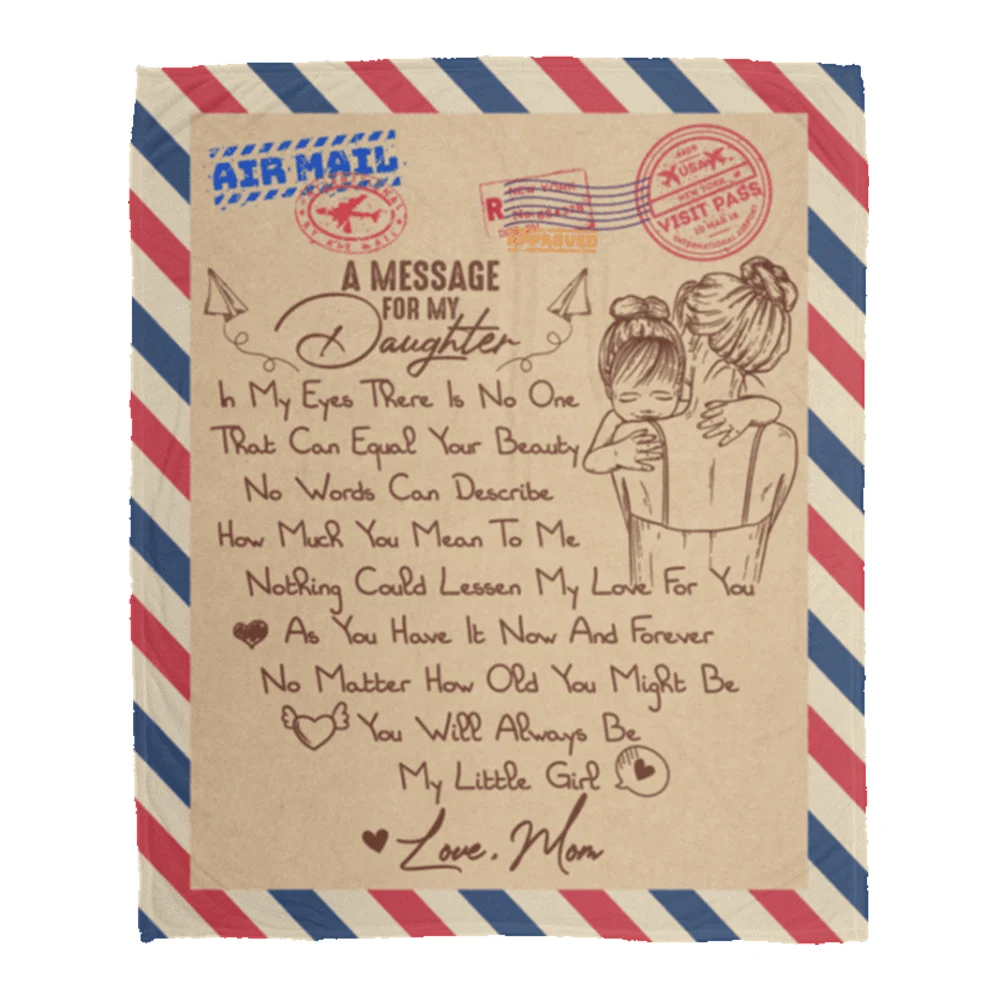 AIR MAIL
NEW YORK
R No.
APPROVED
USA
NEW YORK
VISIT PASS
10 MAR 18
INTERNATIONAL AIRPORT
A MESSAGE
FOR MY
Daughter
In My Eyes There Is No One
That Can Equal Your Beauty
No Words Can Describe
How Much You Mean To Me
Nothing Could Lessen My Love For You
As You Have It Now And Forever
No Matter How Old You Might Be
You Will Always Be
My Little Girl
Love, Mom